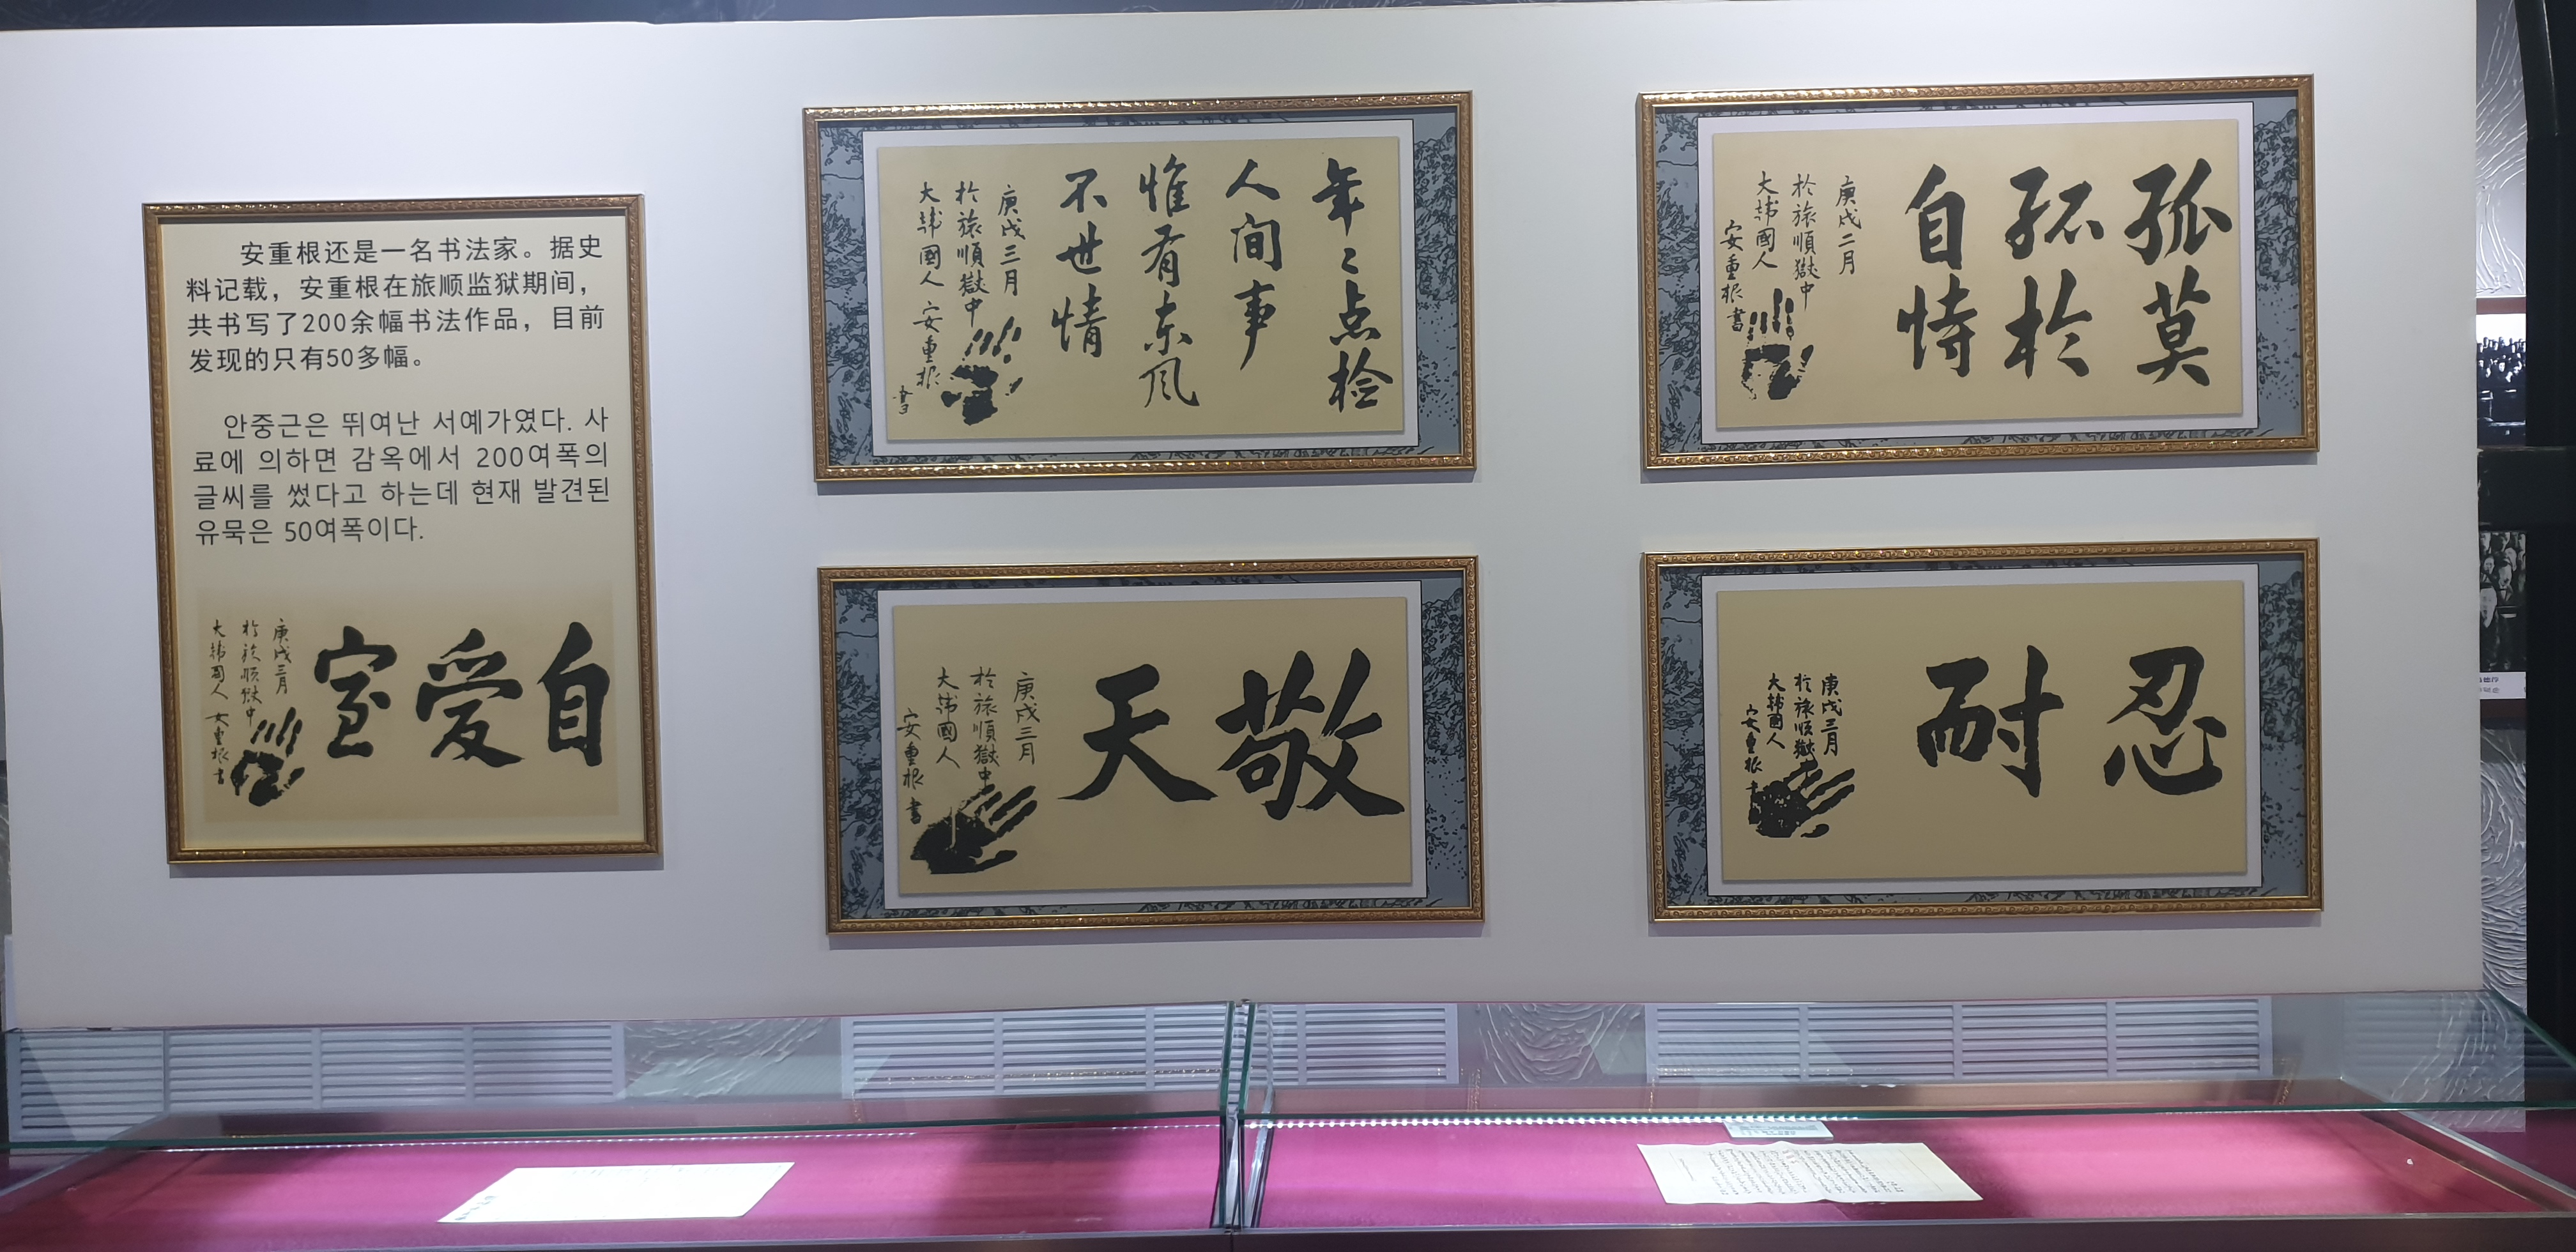 安重根还是一名书法家。据史
料记载，安重根在旅顺监狱期间，
共书写了200余幅书法作品，目前
发现的只有50多幅。
안중근은 뛰여난 서예가였다. 사
료에 의하면 감옥에서 200여폭의
글씨를 썼다고 하는데 현재 발견된
유묵은 50여폭이다.
自愛室
庚戌三月
於旅順獄中
大韓國人 安重根書
年〻点检
人间事
惟有东风
不世情
庚戌三月
於旅順獄中
大韓國人 安重根
書
孤莫
孤於
自恃
庚戌二月
於旅順獄中
大韓國人
安重根書
敬天
庚戌三月
於旅順獄中
大韓國人
安重根書
忍耐
庚戌三月
於旅順獄中
大韓國人
安重根